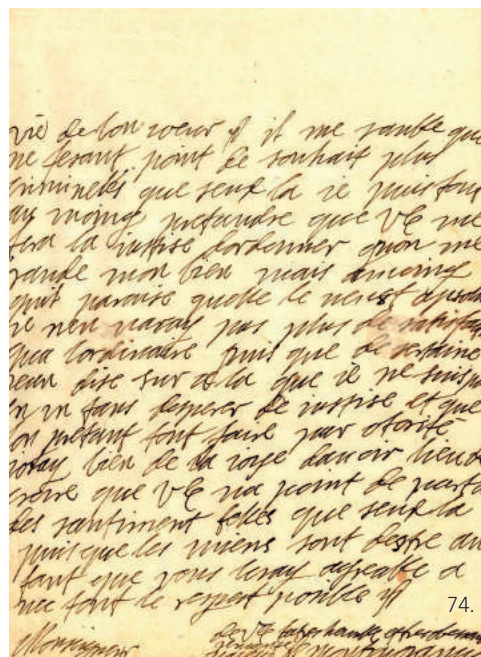 vie de bon coeur il me samble que
ne fesant point de souhait plus
criminelles que seux la ie puis
du moings pretandre que VE me
fera la iustise dordenner quon me
rande mon bien mais amoings
quil paroise quelle le veust
ie nen naray pas plus de
qua lordinaire puis que de sertaine
dise sur sela que ie ne suis
en un tans desperer de iustise et que
on pretant tout faire par otorité
ioray bien de la ioye davoir lieu de
croire que VE na point de part a
des santiment telles que seux la
puis que les miens sont destre
tant que vous seray agreable a
vec tout le respect posible
Monseigneur
de VE
74.